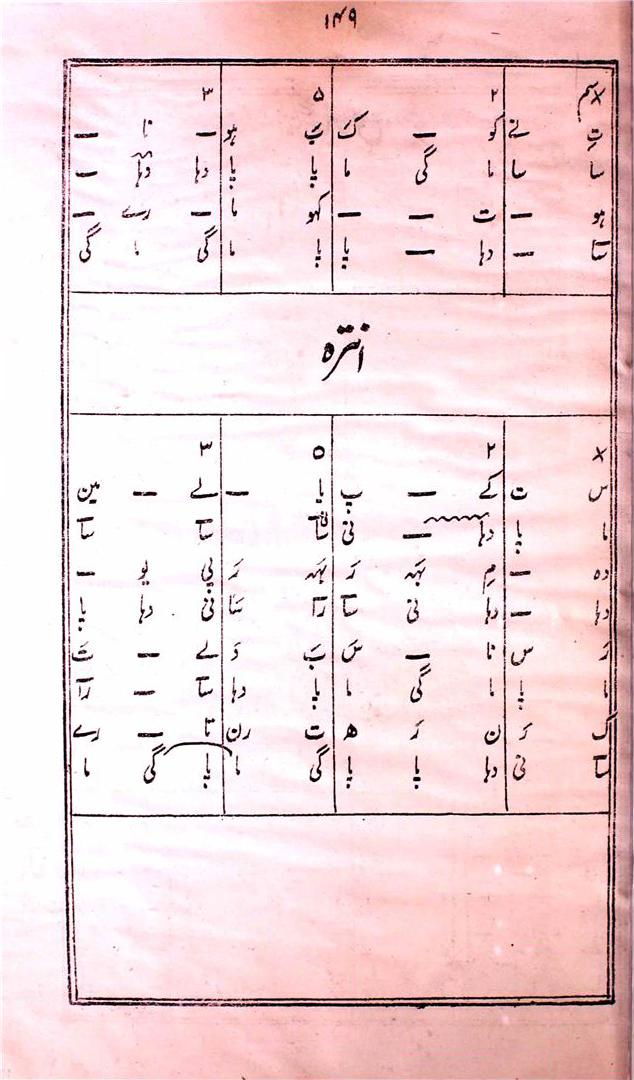 ۱۴۹
× سم ۲ ۵ ۳
تِ نے کو — کَ بَ ہو — نا —
سا سا ما گی ما پا پا دہا دہا —
ہو — ت — — کہو ما — رے —
سا — دہا — پا پا ما گی ما گی
انترہ
× ۲ ۵ ۳
س ت کے — پ یا — لے — مین
ما پا دہا — نی سا سا سا
دہ — مِ بَہ رَ بَہ رَ پی یو —
دہا — دہا نی سا رَا سَا نی دہا پا
رَ س نا — سَ بَ دَ لے — تَ
ما پا ما گی ما پا دہا سا — رَا
گ رَ ن رَ ھ ت رن تا — رے
سا نی دہا پا پا گی ما پا گی ما